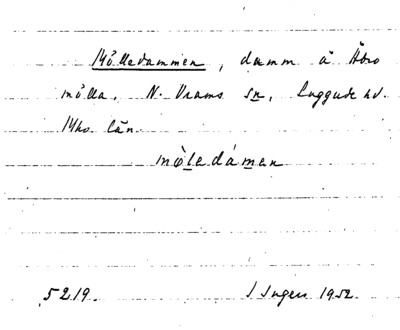 Mölledammen, damm å Åbro
mölla. N. Vrams sn, Luggude hd.
Mho. län.
mòledámen
5219. I. Ingers 1952.